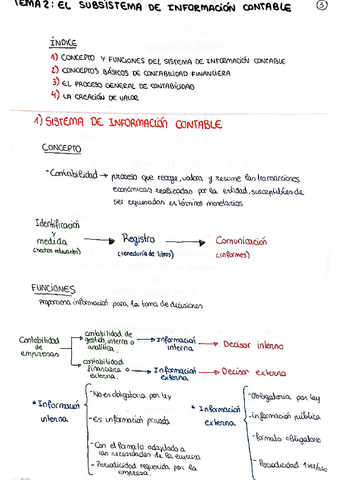 TEMA 2: EL SUBSISTEMA DE INFORMACIÓN CONTABLE
ÍNDICE
1) CONCEPTO Y FUNCIONES DEL SISTEMA DE INFORMACIÓN CONTABLE
2) CONCEPTOS BÁSICOS DE CONTABILIDAD FINANCIERA
3) EL PROCESO GENERAL DE CONTABILIDAD
4) LA CREACIÓN DE VALOR
1) SISTEMA DE INFORMACIÓN CONTABLE
CONCEPTO
• Contabilidad → proceso que recoge, valora y resume las transacciones
económicas realizadas por la entidad, susceptibles de
ser expresadas en términos monetarios
Identificación
y
medida → Registro → Comunicación
(hechos relevantes) (teneduría de libros) (informes)
FUNCIONES
Proporciona información para la toma de decisiones
Contabilidad de empresas
contabilidad de gestión, interna o analítica. → Información interna → Decisor interno
contabilidad financiera o externa. → Información externa → Decisor externo
* Información interna
- No es obligatoria por ley
- Es información privada
- Con el formato adaptado a
las necesidades de la empresa
- Periodicidad requerida por la
empresa.
* Información externa
- Obligatoria por ley
- información pública
- formato obligatorio
- Periodicidad 1 vez/año